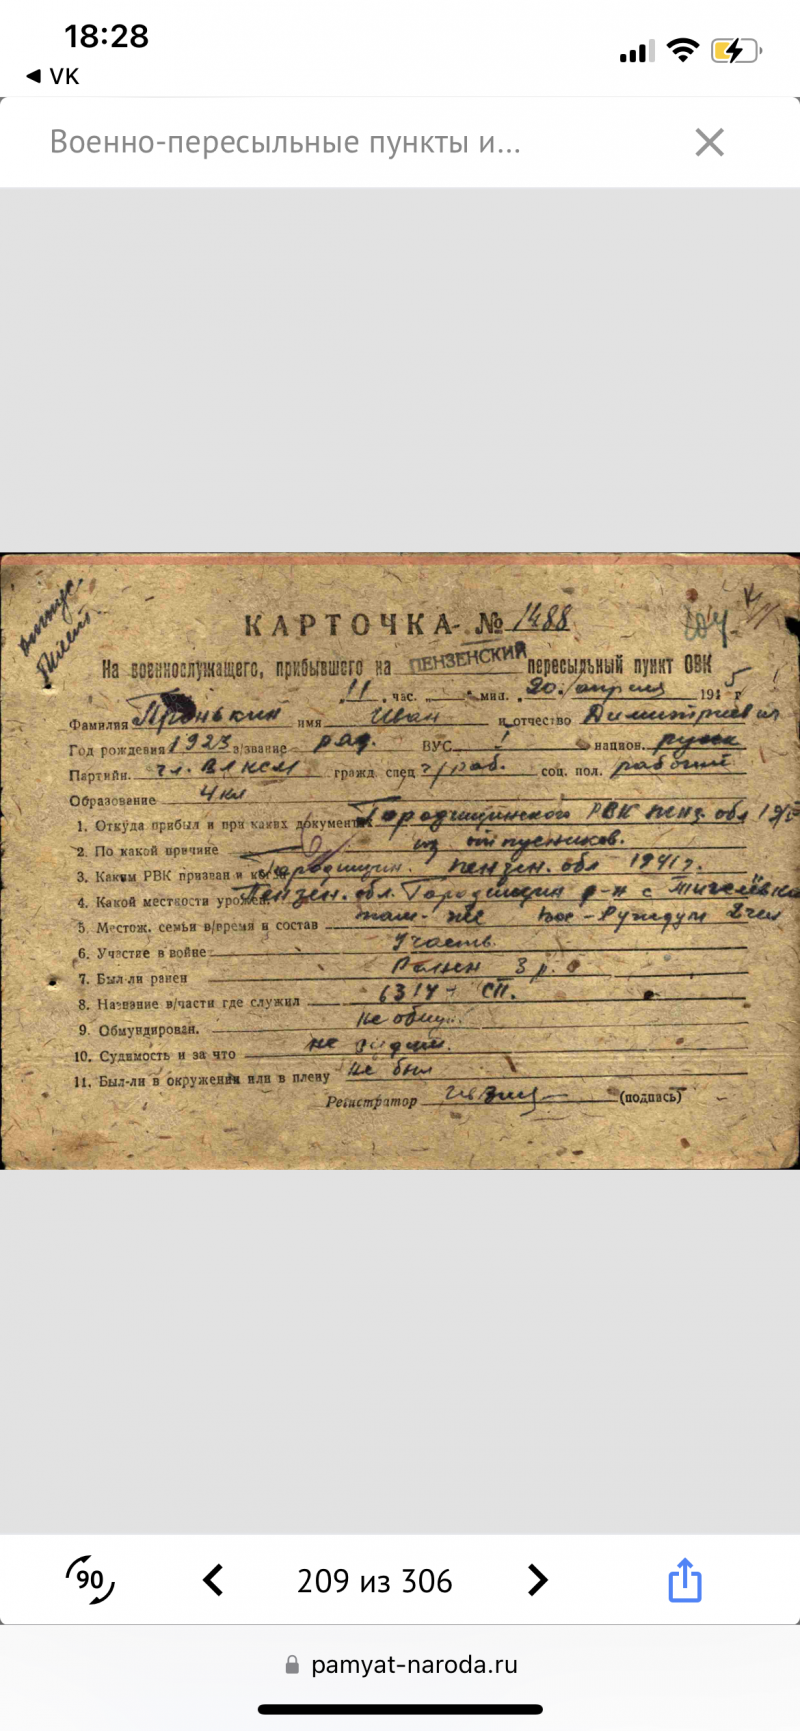 18:28
◀ VK
Военно-пересыльные пункты и...
КАРТОЧКА № 1488
На военнослужащего, прибывшего на ПЕНЗЕНСКИЙ пересыльный пункт ОВК
11 час. мин. 20. апреля 1945 г
Фамилия Пронькин имя Иван и отчество Димитриевич
Год рождения 1923 в/звание ряд. ВУС 1 национ. русск
Партийн. чл. ВЛКСМ гражд спец ч/раб. соц. пол. рабочий
Образование 4 кл
1. Откуда прибыл и при каких документ Городищинского РВК пенз. обл
2. По какой причине из отпускников.
3. Каким РВК призван и Городищин. пензен. обл 1941 г.
4. Какой местности урожен Пензен. обл. Городищин р-н с
5. Местож. семьи в/время и состав там-же 2 чел
6. Участие в войне Участв.
7. Был-ли ранен Ранен 3 р.
8. Название в/части где служил СП.
9. Обмундирован. не обму
10. Судимость и за что не судим.
11. Был-ли в окружении или в плену не был
Регистратор (подпись)
90
209 из 306
pamyat-naroda.ru